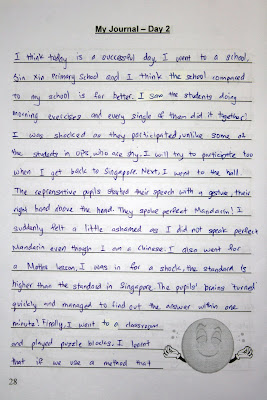 My Journal – Day 2
I think today is a successful day. I went to a school,
Xin Xin Primary School and I think the school compared
to my school is far better. I saw the students doing
morning exercises and every single of them did it together!
I was shocked as they participated, unlike some of
the students in OPS, who are shy. I will try to participate too
when I get back to Singapore. Next, I went to the hall.
The representive pupils started their speech with a gesture, their
right hand above the head. They spoke perfect Mandarin! I
suddenly felt a little ashamed as I did not speak perfect
Mandarin even though I am a Chinese. I also went for
a Maths lesson. I was in for a shock, the standard is
higher than the standard in Singapore. The pupils' brains 'turned'
quickly and managed to find out the answer within one
minute! Finally, I went to a classroom
and played puzzle blocks. I learnt
that if we use a method that
28